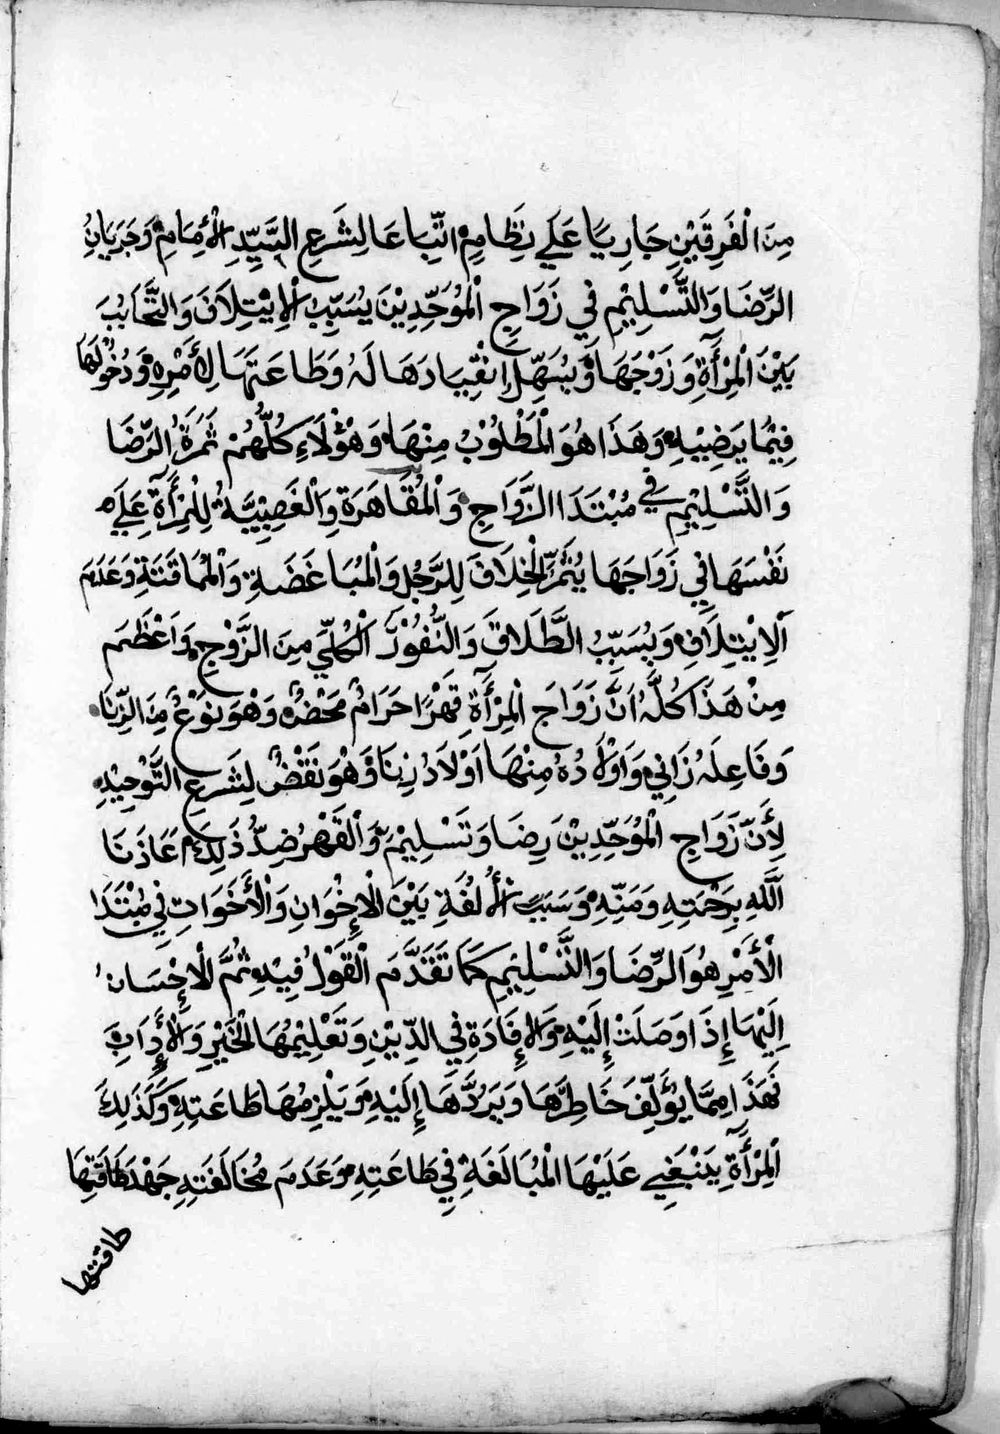 مِنَ الْفَرِقَيْنِ جَارِيًا عَلَي نِظَامِهِ اتِّبَاعًا لِشَرِعِ السَّيِّدِ الْأِمَامِ وَجَرَيَانُ
الرِّضَا وَالتَّسْلِيْمِ فِي زَوَاجِ الْمُوَحِّدِيْنَ يُسَبِّبُ الْاِيْتِلَافَ وَالتَّحَابُبَ
بَيْنَ الْمِرْأَةِ وَزَوْجَهَا وَيُسَهِّلُ اِنْقِيَادَهَا لَهُ وَطَاعَتَهَا لِأَمْرِهِ وَدُخُوْلَهَا
فِيْمَا يَرَضِيْهِ وَهَذَا هُوَ الْمَطْلُوْبُ مِنْهَا وَهَؤُلَاءِ كُلُّهُمْ ثَمَرَةُ الرِّضَا
وَالتَّسْلِيْمِ فِي مُبْتَدَا الزَّوَاجِ وَالْمُقَاهَرَةِ وَالْغَصِبِيَّةُ لِلْمِرْأَةِ عَلَي
نَفْسَهَا فِي زَوَاجَهَا يُثَمِّرُ الْخِلَافَ لِلرَّجُلِ وَالْمُبَاغَضَةِ وَالْمُمَاقَتَةِ وَعَدَمَ
اَلْاِيْتِلَافِ وَيُسَبِّبُ الطَّلَاقَ وَالنُّفُوْرَ الْكُلِّيَّ مِنَ الزَّوْجِ وَاَعْظَمَ
مِنْ هَذَا كُلَّهُ اَنَّ زَوَاجَ الْمِرْأَةِ قَهْرًا حَرَامٌ مَحْضٌ وَهْوَ نَوْعٌ مِنَ الزِّنَا
وَفَاعِلَهُ زَانِي وَاَوْلَادُهُ مِنْهَا اَوْلَادُ زِنَا وَهْوَ نَقْضٌ لِشَرِعِ التَّوْحِيْدِ
لِأَنَّ زَوَاجِ الْمُوَحِّدِيْنَ رِضَا وَتَسْلِيْمٌ وَالْقَهْرُ ضِدُّ ذَلِكَ عَاذَنَا
اَللَّهِ بِرَحْمَتِهِ وَمَنِّهِ وَسَبَبُ الْأُلْفَةِ بَيْنَ الْاِخْوَانِ وَالْأَخَوَاتِ فِي مُبْتَدَا
الْأَمْرِ هُوَ الرِّضَا وَالتَّسْلِيْمِ كَمَا تَقَدَّمَ الْقَوْلُ فِيْهِ ثُمَّ الْاِحْسَانُ
اِلَيْهَا إِذَا وَصَلَتْ إِلَيْهِ وَالْاِفَادَةِ فِي الدِّيْنِ وَتَعْلِيْمُهَا الْخَيْرِ وَالْأَدَابَ
فَهَذَا مِمَّا يُؤَلِّفَ خَاطِرَهَا وَيَرُدَّهَا إِلَيْهِ وَيَلْزِمُهَا طَاعَتِهِ وَكَذَلِكَ
الْمِرْأَةِ يَنْبَغِي عَلَيْهَا الْمُبَالَغَةِ فِي طَاعَتِهِ وَعَدَمَ مُخَالَفَتِهِ جَهْدَ طَاقَتِهَا
طاقتها